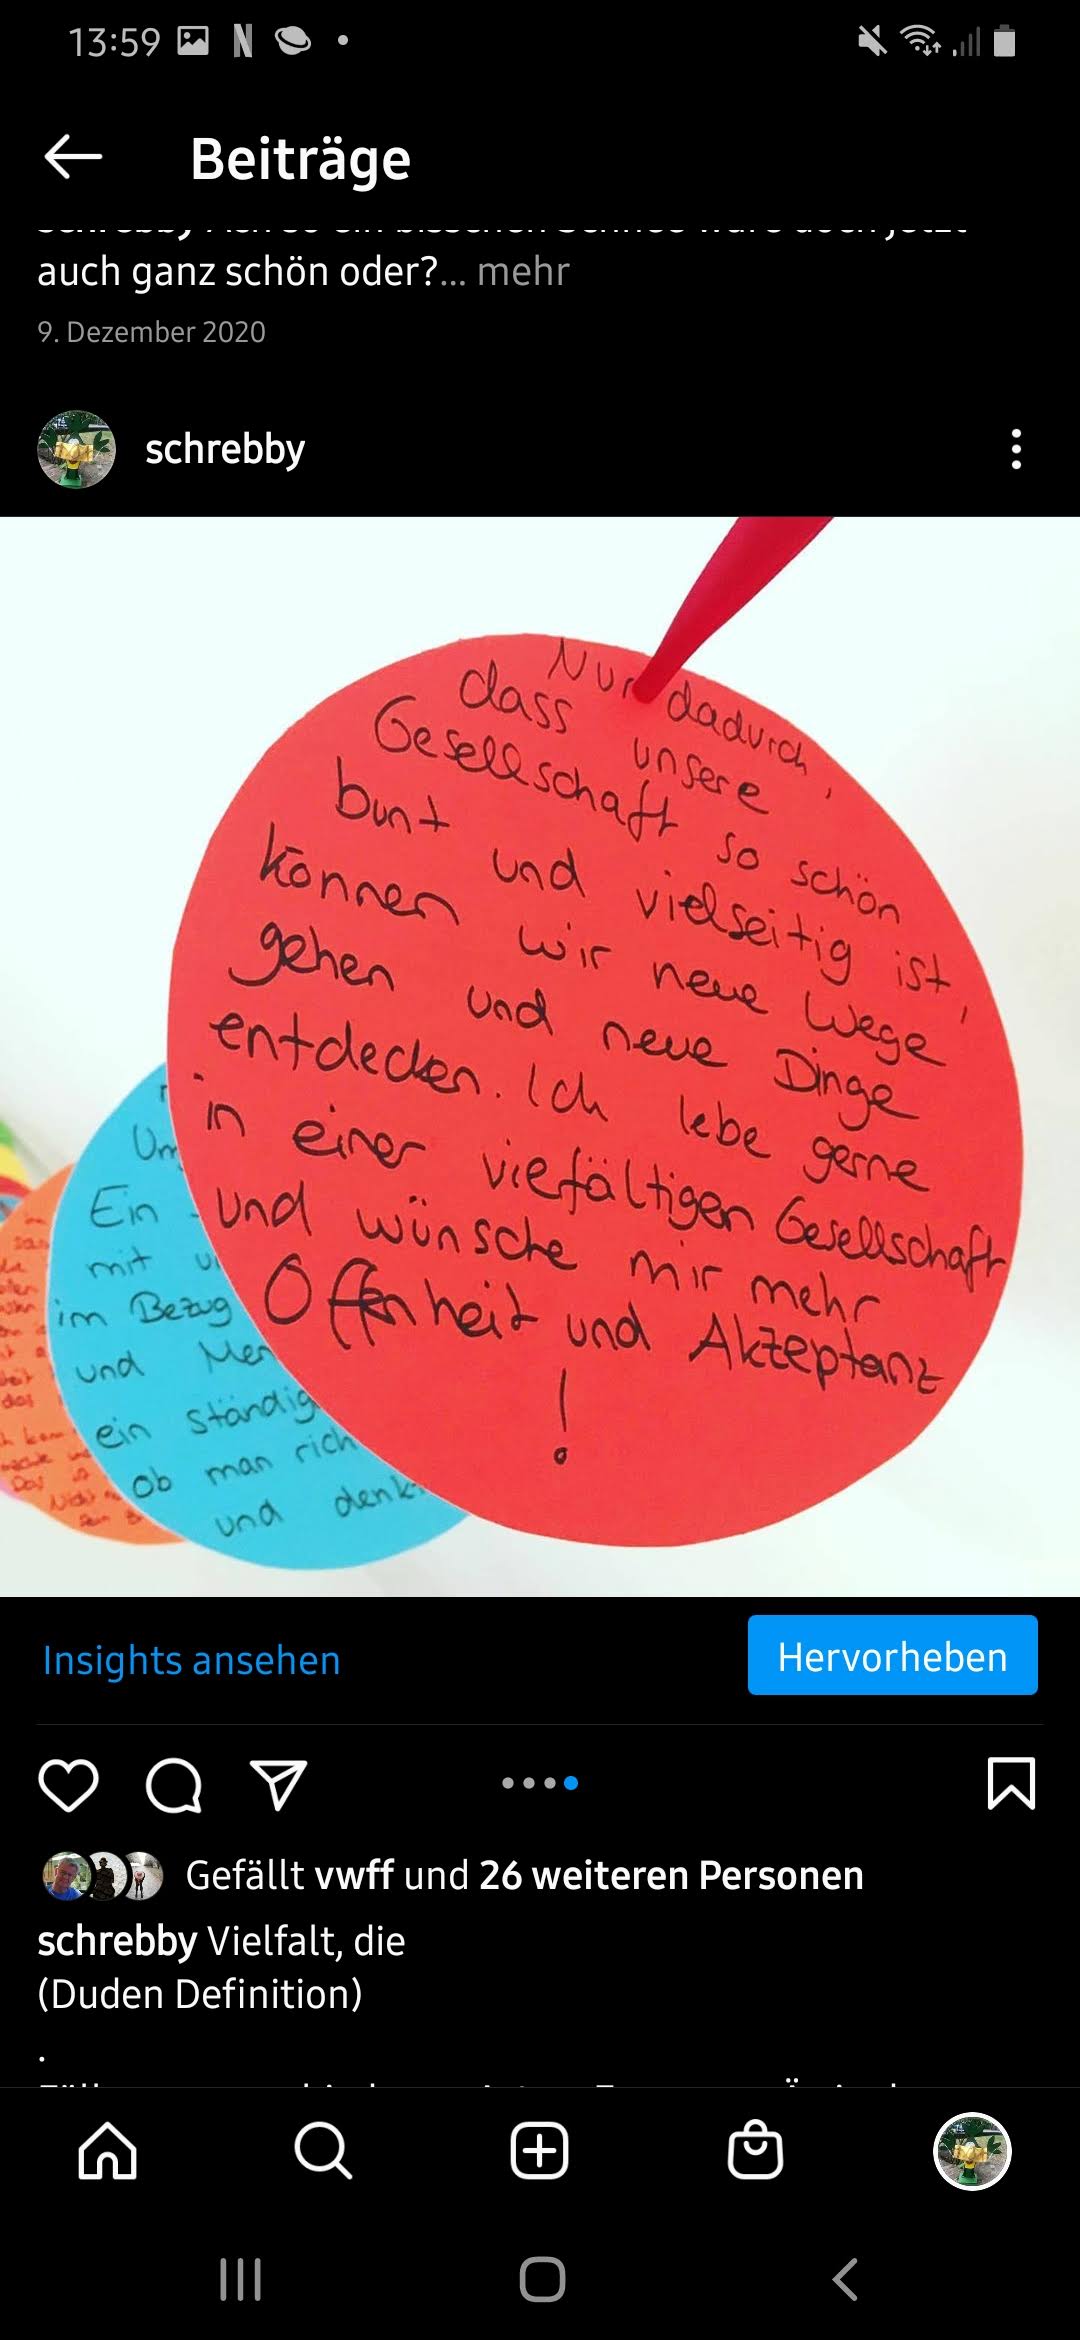 13:59
Beiträge
auch ganz schön oder?... mehr
9. Dezember 2020
schrebby
Nur dadurch,
dass unsere
Gesellschaft so schön
bunt und vielseitig ist,
können wir neue Wege
gehen und neue Dinge
entdecken. Ich lebe gerne
in einer viefältigen Gesellschaft
und wünsche mir mehr
Offenheit und Akzeptanz
!
Ein
mit
im Bezug
und
ein
ob man
und
Insights ansehen
Hervorheben
Gefällt vwff und 26 weiteren Personen
schrebby Vielfalt, die
(Duden Definition)
.